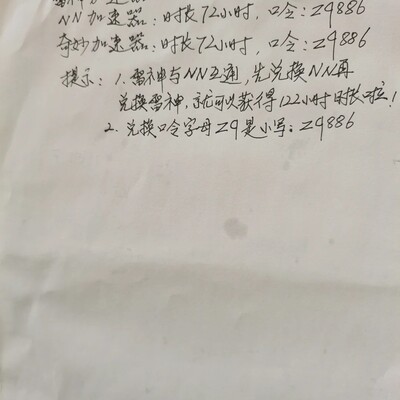 加速器
NN加速器:时长72小时,口令:z9886
奇妙加速器:时长72小时,口令:z9886
提示:1.雷神与NN互通,先兑换NN再
兑换雷神,就可以获得122小时时长啦!
2.兑换口令字母z9是小写:z9886